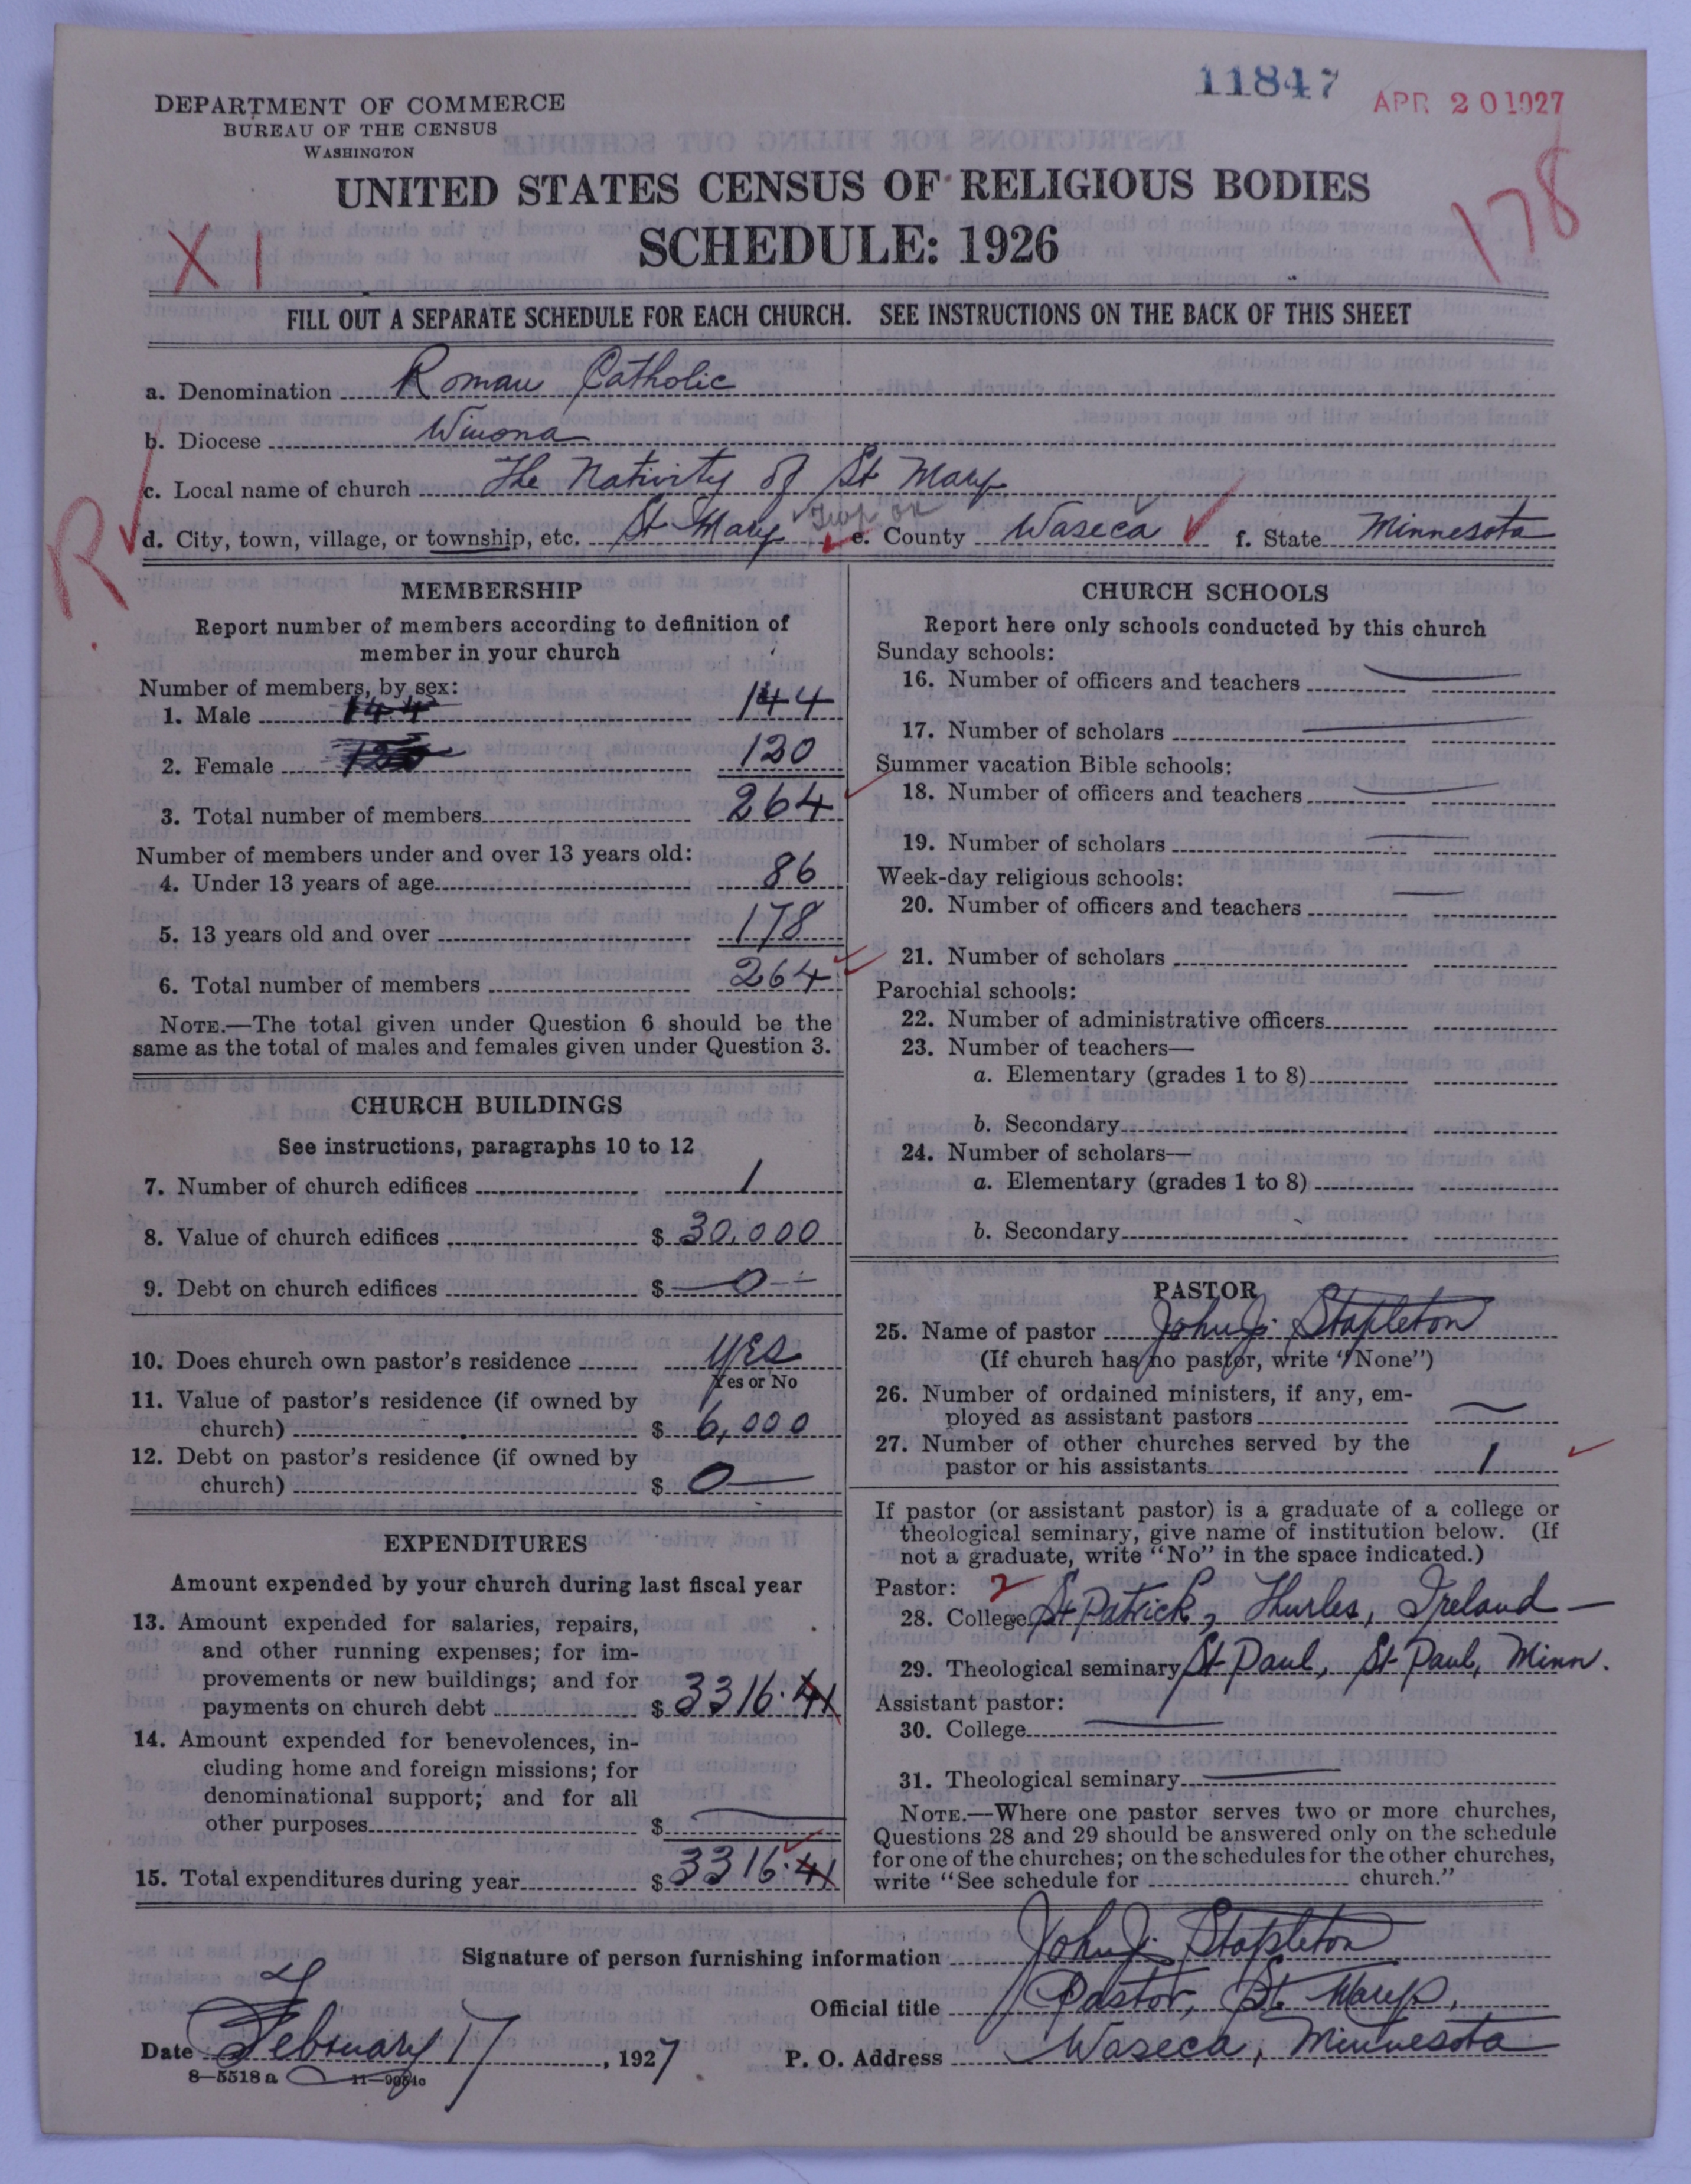 11847
APR 20 1927
DEPARTMENT OF COMMERCE
BUREAU OF THE CENSUS
WASHINGTON
UNITED STATES CENSUS OF RELIGIOUS BODIES
178
X 1
SCHEDULE: 1926
FILL OUT A SEPARATE SCHEDULE FOR EACH CHURCH. SEE INSTRUCTIONS ON THE BACK OF THIS SHEET
a. Denomination Roman Catholic
b. Diocese Winona
c. Local name of church The Nativity of St Mary
R
Twp OK
d. City, town, village, or township, etc. St Mary e. County Waseca f. State Minnesota
MEMBERSHIP
Report number of members according to definition of
member in your church
Number of members, by sex:
1. Male 144 144
2. Female 120
3. Total number of members 264
Number of members under and over 13 years old:
4. Under 13 years of age 86
5. 13 years old and over 178
6. Total number of members 264
NOTE.—The total given under Question 6 should be the
same as the total of males and females given under Question 3.
CHURCH BUILDINGS
See instructions, paragraphs 10 to 12
7. Number of church edifices 1
8. Value of church edifices $ 30,000
9. Debt on church edifices $ —0—
10. Does church own pastor's residence yes
Yes or No
11. Value of pastor's residence (if owned by
church) $ 6,000
12. Debt on pastor's residence (if owned by
church) $ 0—
EXPENDITURES
Amount expended by your church during last fiscal year
13. Amount expended for salaries, repairs,
and other running expenses; for im-
provements or new buildings; and for
payments on church debt $ 3316.41
14. Amount expended for benevolences, in-
cluding home and foreign missions; for
denominational support; and for all
other purposes $ —
15. Total expenditures during year $ 3316.41
CHURCH SCHOOLS
Report here only schools conducted by this church
Sunday schools:
16. Number of officers and teachers —
17. Number of scholars —
Summer vacation Bible schools:
18. Number of officers and teachers —
19. Number of scholars —
Week-day religious schools:
20. Number of officers and teachers —
21. Number of scholars
Parochial schools:
22. Number of administrative officers
23. Number of teachers—
a. Elementary (grades 1 to 8)
b. Secondary
24. Number of scholars—
a. Elementary (grades 1 to 8)
b. Secondary
PASTOR
25. Name of pastor John J. Stapleton
(If church has no pastor, write "None")
26. Number of ordained ministers, if any, em-
ployed as assistant pastors —
27. Number of other churches served by the
pastor or his assistants 1
If pastor (or assistant pastor) is a graduate of a college or
theological seminary, give name of institution below. (If
not a graduate, write "No" in the space indicated.)
Pastor: 2
28. College St Patrick, Thurles, Ireland —
29. Theological seminary St Paul, St Paul, Minn.
Assistant pastor:
30. College —
31. Theological seminary —
NOTE.—Where one pastor serves two or more churches,
Questions 28 and 29 should be answered only on the schedule
for one of the churches; on the schedules for the other churches,
write "See schedule for church."
Signature of person furnishing information John J. Stapleton
Official title Pastor, St. Mary's,
Date February 17, 1927 P. O. Address Waseca, Minnesota
8—5518 a